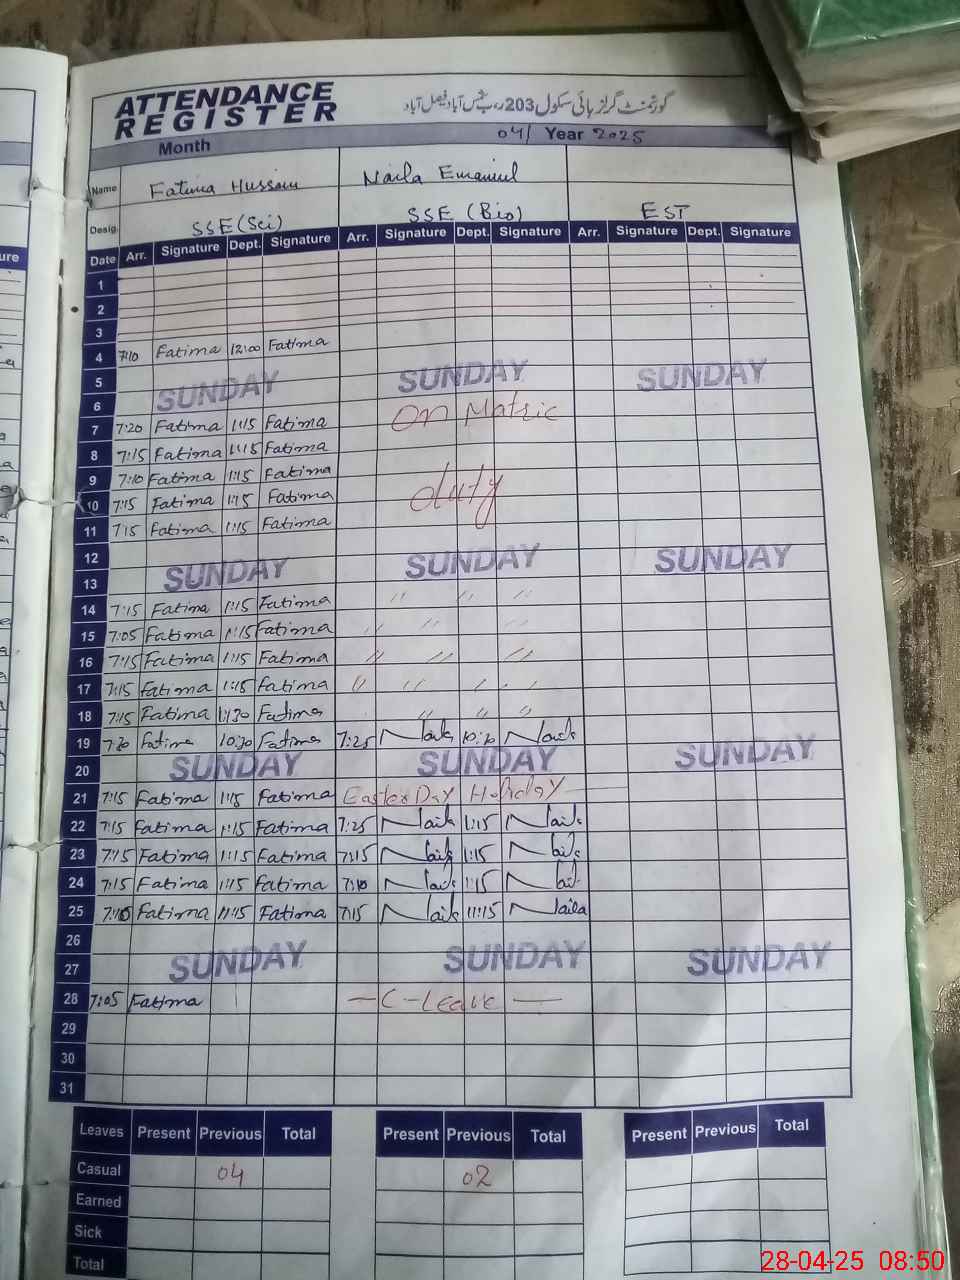 ATTENDANCE
REGISTER
گورنمنٹ گرلز ہائی سکول 203 ر،ب شمس آباد فیصل آباد
Month 04/ Year 2025
Name Fatima Hussain Naila Emanuel
Desig. SSE (Sci) SSE (Bio) EST
Date Arr. Signature Dept. Signature Arr. Signature Dept. Signature Arr. Signature Dept. Signature
1
2
3
4 7:10 Fatima 12:00 Fatima
5 SUNDAY SUNDAY SUNDAY
6
7 7:20 Fatima 1:15 Fatima on Matric
8 7:15 Fatima 1:15 Fatima
9 7:10 Fatima 1:15 Fatima
10 7:15 Fatima 1:15 Fatima duty
11 7:15 Fatima 1:15 Fatima
12 SUNDAY SUNDAY SUNDAY
13
14 7:15 Fatima 1:15 Fatima 〃 〃 〃
15 7:05 Fatima 1:15 Fatima 〃 〃 〃
16 7:15 Fatima 1:15 Fatima 〃 〃 〃
17 7:15 Fatima 1:15 Fatima 〃 〃 〃
18 7:15 Fatima Fatima 〃 〃 〃
19 7:20 Fatima 10:30 Fatima 7:25 Naila Naila
20 SUNDAY SUNDAY SUNDAY
21 7:15 Fatima 1:15 Fatima Easter Day Holiday
22 7:15 Fatima 1:15 Fatima 7:25 Naila 1:15 Naila
23 7:15 Fatima 1:15 Fatima 7:15 Naila 1:15 Naila
24 7:15 Fatima 1:15 Fatima 7:10 Naila 1:15 Naila
25 7:10 Fatima 11:15 Fatima 7:15 Naila 11:15 Naila
26
27 SUNDAY SUNDAY SUNDAY
28 7:05 Fatima — C-Leave —
29
30
31
Leaves Present Previous Total Present Previous Total Present Previous Total
Casual 04 02
Earned
Sick
Total
28-04-25 08:50